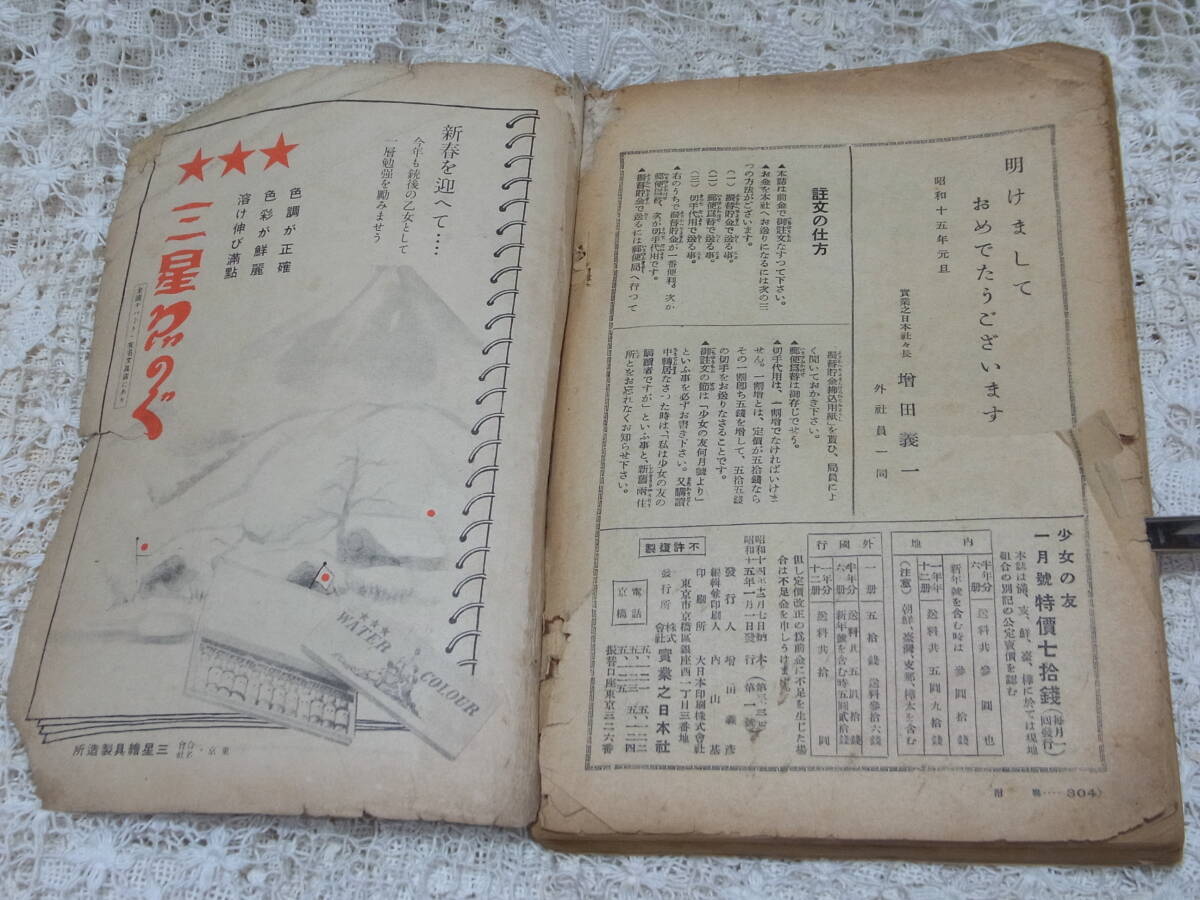 明けまして
おめでたうございます
昭和十五年元旦
實業之日本社々長 増田義一
外社員一同
註文の仕方
▲本誌は前金で御註文なすつて下さい。
▲お金を本社へお送りになるには次の三
つの方法がございます。
(一)振替貯金で送る事。
(二)郵便爲替で送る事。
(三)切手代用で送る事。
右のうちで振替貯金が一番便利。次が
郵便爲替、次が切手代用です。
▲振替貯金で送るには郵便局へ行つて
「振替貯金拂込用紙」を貰ひ、局員によ
く聞いておかき下さい。
▲郵便爲替は御存じでせう。
▲切手代用は、一割増でなければいけま
せん。一割増とは、定價が五拾錢なら
その一割卽ち五錢を増して、五拾五錢
の切手をお送りなさることです。
▲御註文の節は「少女の友何月號より」
といふ事を必ずお書き下さい。又購讀
中轉居なさつた時は、「私は少女の友の
購讀者ですが」といふ事と、新舊兩住
所とをお忘れなくお知らせ下さい。
少女の友
一月號 特價七拾錢(毎月一回發行)
本誌は滿、支、鮮、臺、樺に於ては現地
組合の別記の公定賣價を認む
内地
半年分 六册 送料共參圓也
新年號を含む時は參圓拾錢
一年分 十二册 送料共五圓九拾錢
(注意)朝鮮、臺灣、支那、樺太を含む
外國行
一册 五拾錢 送料參拾六錢
半年分 六册 送料共五圓拾錢 新年號を含む時五圓貳拾錢
一年分 十二册 送料共拾圓
但し定價改正の爲前金に不足を生じた場
合は不足金を申しうけます
不許複製
昭和十五年一月一日發行
發行人 増田義彦
編輯兼印刷人 内山基
印刷所 大日本印刷株式會社
東京市京橋區銀座西一丁目三番地
發行所 株式會社 實業之日本社
電話京橋
振替口座東京三二六番
附錄……304)
新春を迎へて……
今年も銃後の乙女として
一層勉強を勵みませう
色調が正確
色彩が鮮麗
溶け伸び滿點
★★★
三星ゑのぐ
★★★
WATER
COLOUR
東京・合名會社 三星繪具製造所